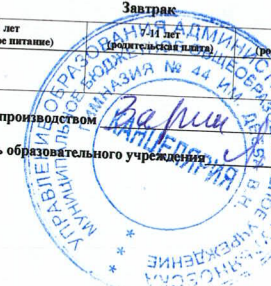 Завтрак
лет
7-11 лет
ое питание)
(родительская плата)
(ро
производством
ь образовательного учреждения
УПРАВЛЕНИЕ ОБРАЗОВАНИЯ АДМИНИС
МУНИЦИПАЛЬНОЕ БЮДЖЕТНОЕ ОБЩЕОБРАЗО
ГИМНАЗИЯ № 44 ИМ. ДЕ
В.Н.
КАНЦЕЛЯРИЯ
НОЕ УЧРЕЖДЕНИЕ
* * *